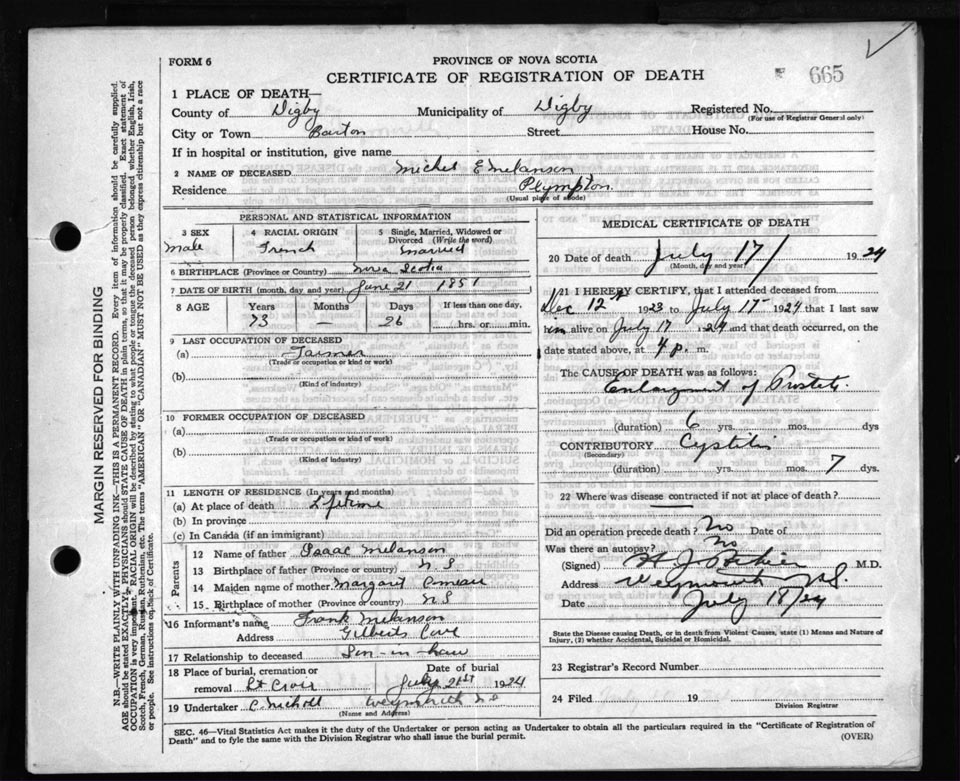 FORM 6
PROVINCE OF NOVA SCOTIA
CERTIFICATE OF REGISTRATION OF DEATH
665
1 PLACE OF DEATH—
County of Digby Municipality of Digby Registered No.
(For use of Registrar General only)
City or Town Barton Street House No.
If in hospital or institution, give name
2 NAME OF DECEASED Michel E Melanson
Residence Plympton.
(Usual place of abode)
PERSONAL AND STATISTICAL INFORMATION
3 SEX
Male
4 RACIAL ORIGIN
French
5 Single, Married, Widowed or Divorced (Write the word)
Married
6 BIRTHPLACE (Province or Country) Nova Scotia
7 DATE OF BIRTH (month, day, and year) June 21 1851
8 AGE Years Months Days If less than one day,
73 — 26 hrs. or min.
9 LAST OCCUPATION OF DECEASED
(a) Farmer
(Trade or occupation or kind or work)
(b)
(Kind of industry)
10 FORMER OCCUPATION OF DECEASED
(a)
(Trade or occupation or kind of work)
(b)
(Kind of industry)
11 LENGTH OF RESIDENCE (In years and months)
(a) At place of death Lifetime
(b) In province
(c) In Canada (if an immigrant)
Parents
12 Name of father Isaac Melanson
13 Birthplace of father (Province or country) N S
14 Maiden name of mother Margaret Comeau
15 Birthplace of mother (Province or country) N S
16 Informant's name Frank Melanson
Address Gilberts Cove
17 Relationship to deceased Son-in-Law
18 Place of burial, cremation or removal St Croix
Date of burial July 21st 1924
19 Undertaker C. Nicholl Weymouth N S
(Name and Address)
MEDICAL CERTIFICATE OF DEATH
20 Date of death July 17/ 1924
(Month, day and year)
21 I HEREBY CERTIFY, that I attended deceased from
Dec 12th 1923 to July 17 1924 that I last saw
him alive on July 17 1924 and that death occurred, on the
date stated above, at 4 p. m.
The CAUSE OF DEATH was as follows:
Enlargment of Prostate.
(duration) 6 yrs. mos. dys
CONTRIBUTORY Cystitis
(Secondary)
(duration) yrs. mos. 7 dys.
22 Where was disease contracted if not at place of death?
Did an operation precede death? No Date of
Was there an autopsy? No
(Signed) M.D.
Address Weymouth N.S.
Date July 18/24
State the Disease causing Death, or in death from Violent Causes, state (1) Means and Nature of
Injury, (2) whether Accidental, Suicidal or Homicidal.
23 Registrar's Record Number
24 Filed 19
Division Registrar
SEC. 46—Vital Statistics Act makes it the duty of the Undertaker or person acting as Undertaker to obtain all the particulars required in the "Certificate of Registration of
Death" and to fyle the same with the Division Registrar who shall issue the burial permit.
(OVER)
MARGIN RESERVED FOR BINDING
N.B.—WRITE PLAINLY, WITH UNFADING INK—THIS IS A PERMANENT RECORD. Every item of information should be carefully supplied.
AGE should be stated EXACTLY. PHYSICIANS should STATE CAUSE OF DEATH in plain terms, so that it may be properly classified. Exact statement of
OCCUPATION is very important. RACIAL ORIGIN will be described by stating to what people or tongue the deceased person belonged whether English, Irish,
Scotch, French, German, Russian, Ruthenian, etc. The terms "AMERICAN" OR "CANADIAN" MUST NOT BE USED as they express citizenship but not a race
or people. See instructions on back of Certificate.